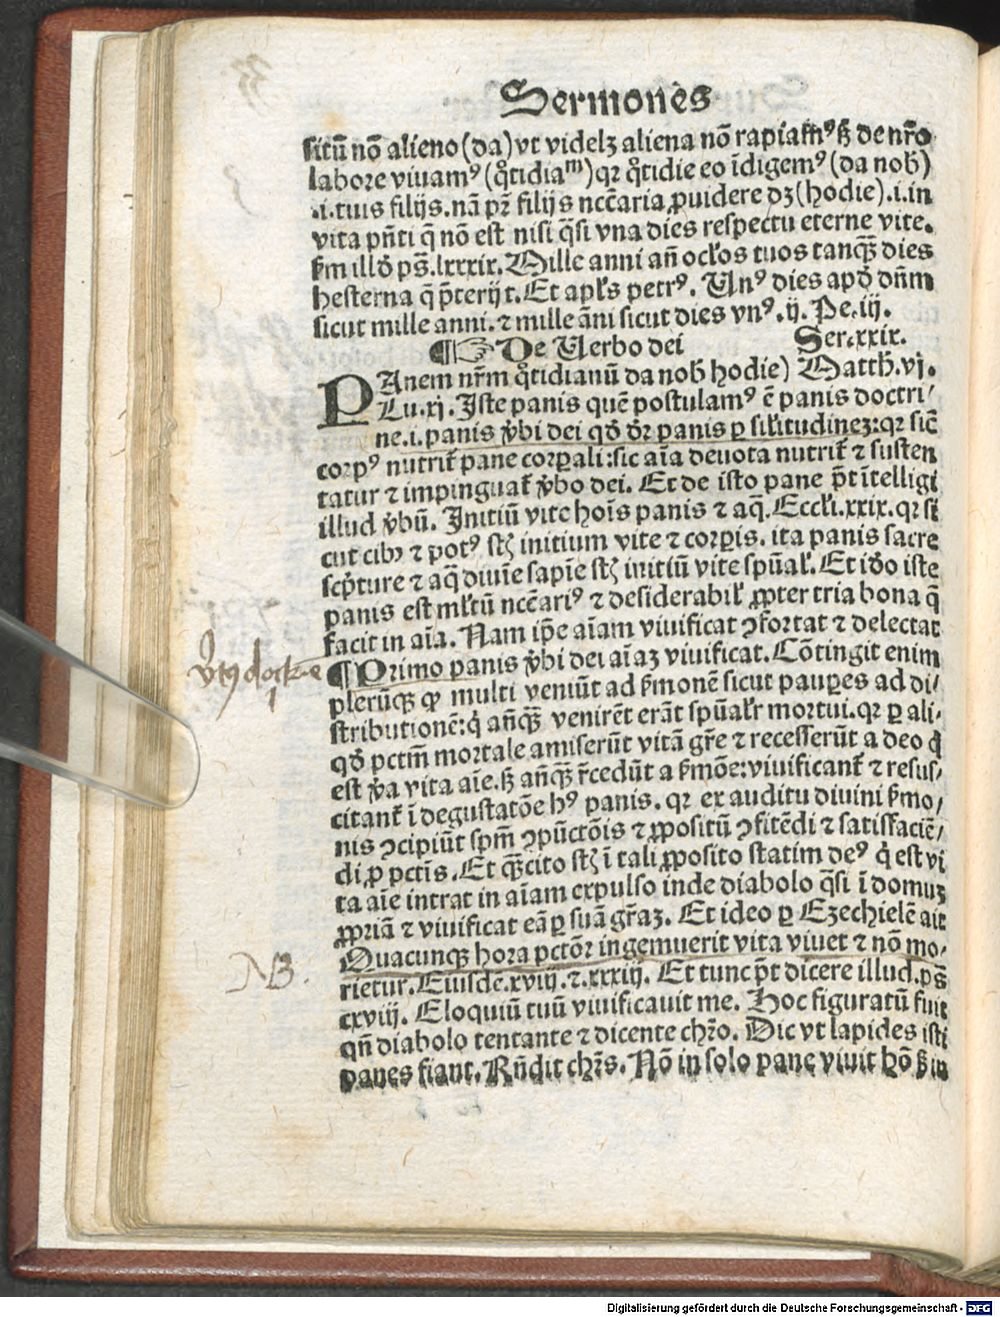 Sermones
sitū nō alieno (da) vt videlꝫ aliena nō rapiamꝰ sꝫ de nr̄o
labore viuamꝰ (q̄tidiaᵐ) qꝛ q̄tidie eo īdigemꝰ (da nob̄)
.i. tuis filijs. nā pr̄ filijs nc̄caria ꝓuidere dꝫ (hodie) .i. in
vita pn̄ti q̄ nō est nisi q̄si vna dies respectu eterne vite.
ẜm illd̓ pꝰ̄. lxxxix. Mille anni an̄ ocl̓os tuos tanqꝫ̄ dies
hesterna q̄ p̄terijt. Et apl̓s petrꝰ. Vnꝰ dies apd̓ dn̄m
sicut mille anni. ⁊ mille āni sicut dies vnꝰ. ij. Pe. iij.
¶ ☞ De Verbo dei Ser. xxix.
PAnem nr̄m q̄tidianū da nob̄ hodie) Matth. vj.
Lu. xj. Iste panis quē postulamꝰ ē panis doctri/
ne .i. panis v̓bi dei qd̓ dr̄ panis ꝑ sil̓itudinez: qꝛ sic̄
corpꝰ nutrit̄ pane corꝑali: sic aīa deuota nutrit̄ ⁊ susten
tatur ⁊ impinguat̄ v̓bo dei. Et de isto pane p̄t ītelligi
illud v̓bū. Initiū vite hoīs panis ⁊ aq̄. Eccl̓i. xxix. qꝛ si
cut cibꝰ ⁊ potꝰ st̄ initium vite ⁊ corꝑis. ita panis sacre
scp̄ture ⁊ aq̄ diuīe sapīe st̄ initiū vite spūal̓. Et id̓o iste
panis est ml̓tū nc̄cariꝰ ⁊ desiderabil̓ ꝓpter tria bona q̄
facit in aīa. Nam ip̄e aīam viuificat ꝯfortat ⁊ delectat
¶ Primo panis v̓bi dei aīaꝫ viuificat. Cōtingit enim
plerūqꝫ ꝙ multi veniūt ad ẜmonē sicut pauꝑes ad di/
stributionē: q̓ an̄qꝫ̄ venirēt erāt spūal̓r mortui. qꝛ ꝑ ali/
qd̓ pctm̄ mortale amiserūt vitā gr̄e ⁊ recesserūt a deo q̓
est v̓a vita aīe. sꝫ an̄qꝫ̄ r̄cedūt a ẜmōe: viuificant̄ ⁊ resus/
citant̄ ī degustatōe hꝰ panis. qꝛ ex auditu diuini ẜmo/
nis ꝯcipiūt spm̄ ꝯpūctōis ⁊ ꝓpositū ꝯfitēdi ⁊ satisfaciē/
di ꝓ pctīs. Et qꝫ̄cito st̄ ī tali ꝓposito statim deꝰ q̓ est vi
ta aīe intrat in aīam expulso inde diabolo q̄si ī domuꝫ
ꝓpriā ⁊ viuificat eā ꝑ suā gr̄aꝫ. Et ideo ꝑ Ezechielē ait
Quacunqꝫ hora pctōr ingemuerit vita viuet ⁊ nō mo/
rietur. Eiusdē. xviij. ⁊. xxxiij. Et tunc p̄t dicere illud. pꝰ̄
cxviij. Eloquiū tuū viuificauit me. Hoc figuratū fuit
qn̄ diabolo tentante ⁊ dicente chr̄o. Dic vt lapides isti
panes fiant. Rn̄dit chr̄s. Nō in solo pane viuit hō sꝫ in
NB.
Digitalisierung gefördert durch die Deutsche Forschungsgemeinschaft - DFG